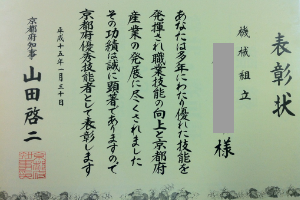 表彰状
機械組立
様
あなたは多年にわたり優れた技能を
発揮され職業技能の向上と京都府
産業の発展に尽くされました
その功績は誠に顕著でありますので
京都府優秀技能者として表彰します
平成十五年一月三十日
京都府知事
山田啓二